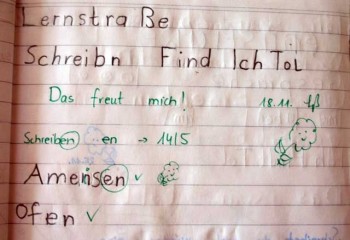 Lernstra ße
Schreibn Find Ich Tol
Das freut mich! 18.11.
Schreiben en → 14/5
Ameisen ✓
Ofen ✓